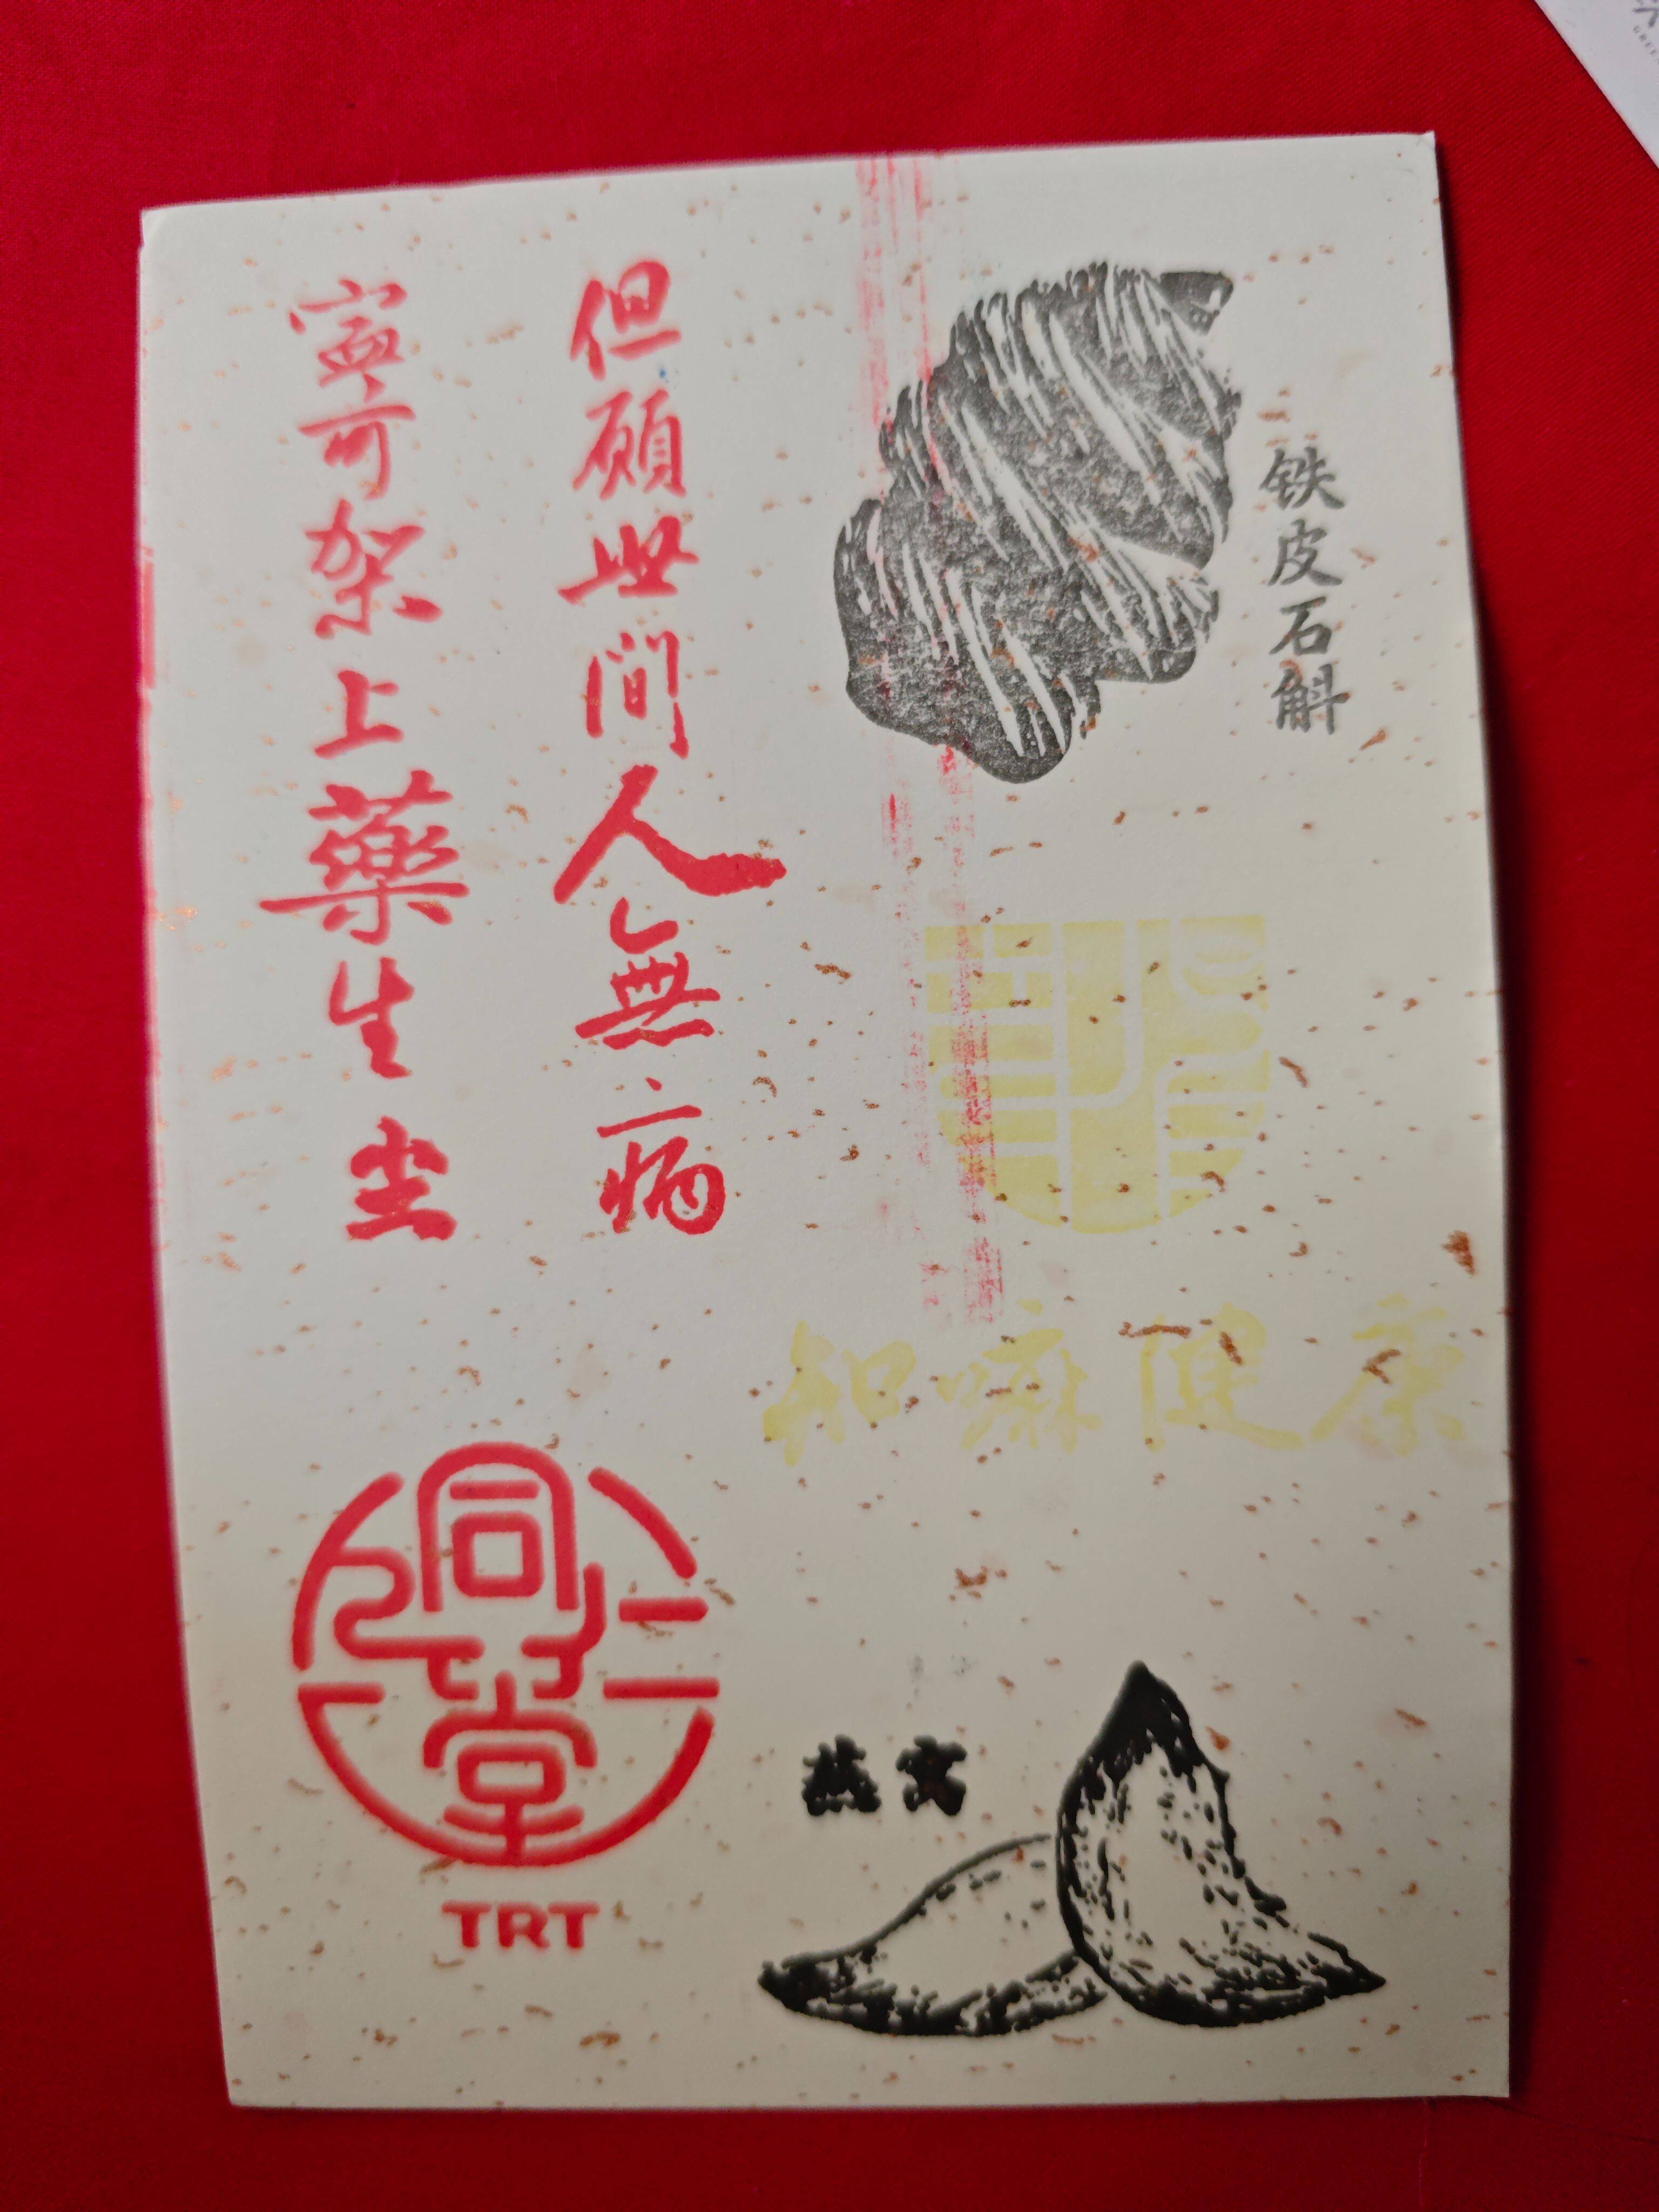 铁皮石斛
但願世間人無病
寧可架上藥生尘
知嘛健康
同仁堂
TRT
燕窝